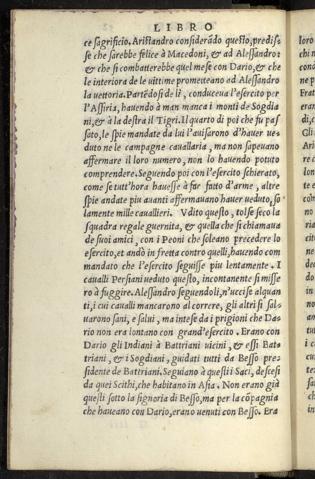 LIBRO
ce sagrificio. Aristandro considerãdo questo, predis-
se che sarebbe felice à Macedoni, & ad Alessandro:
& che si combatterebbe quel mese con Dario, & che
le interiora de le uittime prometteano ad Alessandro
la uettoria. Partẽdosi de lì, conduceua l'esercito per
l'Assiria, hauendo à man manca i monti de Sogdia
ni, & à la destra il Tigri. Il quarto di poi che fu pas
sato, le spie mandate da lui l'auisarono d'hauer ue-
duto ne le campagne cauallaria, ma non sapeuano
affermare il loro numero, non lo hauendo potuto
comprendere. Seguendo poi con l'esercito schierato,
come se tutt'hora hauesse à far fatto d'arme, altre
spie andate piu auanti affermauano hauer ueduto, so
lamente mille cauallieri. Vdito questo, tolse seco la
squadra regale guernita, & quella che si chiamaua
de suoi amici, con i Peoni che soleano precedere lo
esercito, et andò in fretta contro quelli, hauendo com
mandato che l'esercito seguisse piu lentamente. I
caualli Persiani ueduto questo, incontanente si misse
ro à fuggire. Alessandro seguendoli, n'uccise alquan
ti, i cui caualli mancarono al correre, gli altri si sal-
uarono sani, e salui, ma intese da i prigioni che Da-
rio non era lontano con grand'esercito. Erano con
Dario gli Indiani à Battriani uicini, & essi Bat-
triani, & i Sogdiani, guidati tutti da Besso pre-
sidente de Battriani. Seguiano à questi i Saci, descesi
da quei Scithi, che habitano in Asia. Non erano già
questi sotto la signoria di Besso, ma per la cõpagnia
che haueano con Dario, erano uenuti con Besso. Era